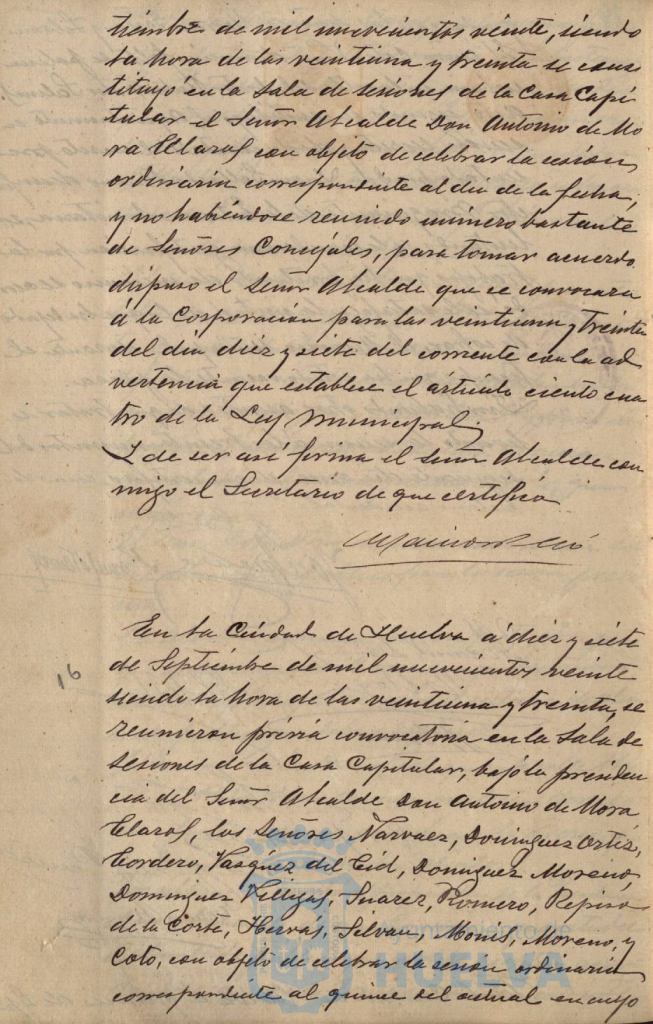 tiembre de mil nuevecientos veinte, siendo
la hora de las veintiuna y treinta se cons
tituyó en la Sala de Sesiones de la Casa Capi
tular el Señor Alcalde Don Antonio de Mo
ra Claros con objeto de celebrar la sesion
ordinaria correspondiente al dia de la fecha,
y no habiéndose reunido número bastante
de Señores Concejales, para tomar acuerdo
dispuso el Señor Alcalde que se convocara
á la Corporación para las veintiuna y treinta
del dia diez y siete del corriente con la ad
vertencia que establece el artículo ciento cua
tro de la Ley Municipal.
Y de ser así firma el Señor Alcalde con
migo el Secretario de que certifico
En la Ciudad de Huelva á diez y siete
de Septiembre de mil nuevecientos veinte
siendo la hora de las veintiuna y treinta, se
reunieron prévia convocatoria en la Sala de
Sesiones de la Casa Capitular, bajo la presiden
cia del Señor Alcalde Don Antonio de Mora
Claros, los Señores Narvaez, Dominguez Ortiz,
Cordero, Vasquez del Cid, Dominguez Moreno,
Dominguez Villegas, Suarez, Romero, Repiso
de la Corte, Hervás, Silvan, Monís, Moreno, y
Coto, con objeto de celebrar la sesion ordinaria
correspondiente al quince del actual en cuyo
16
Ayuntamiento de
HUELVA